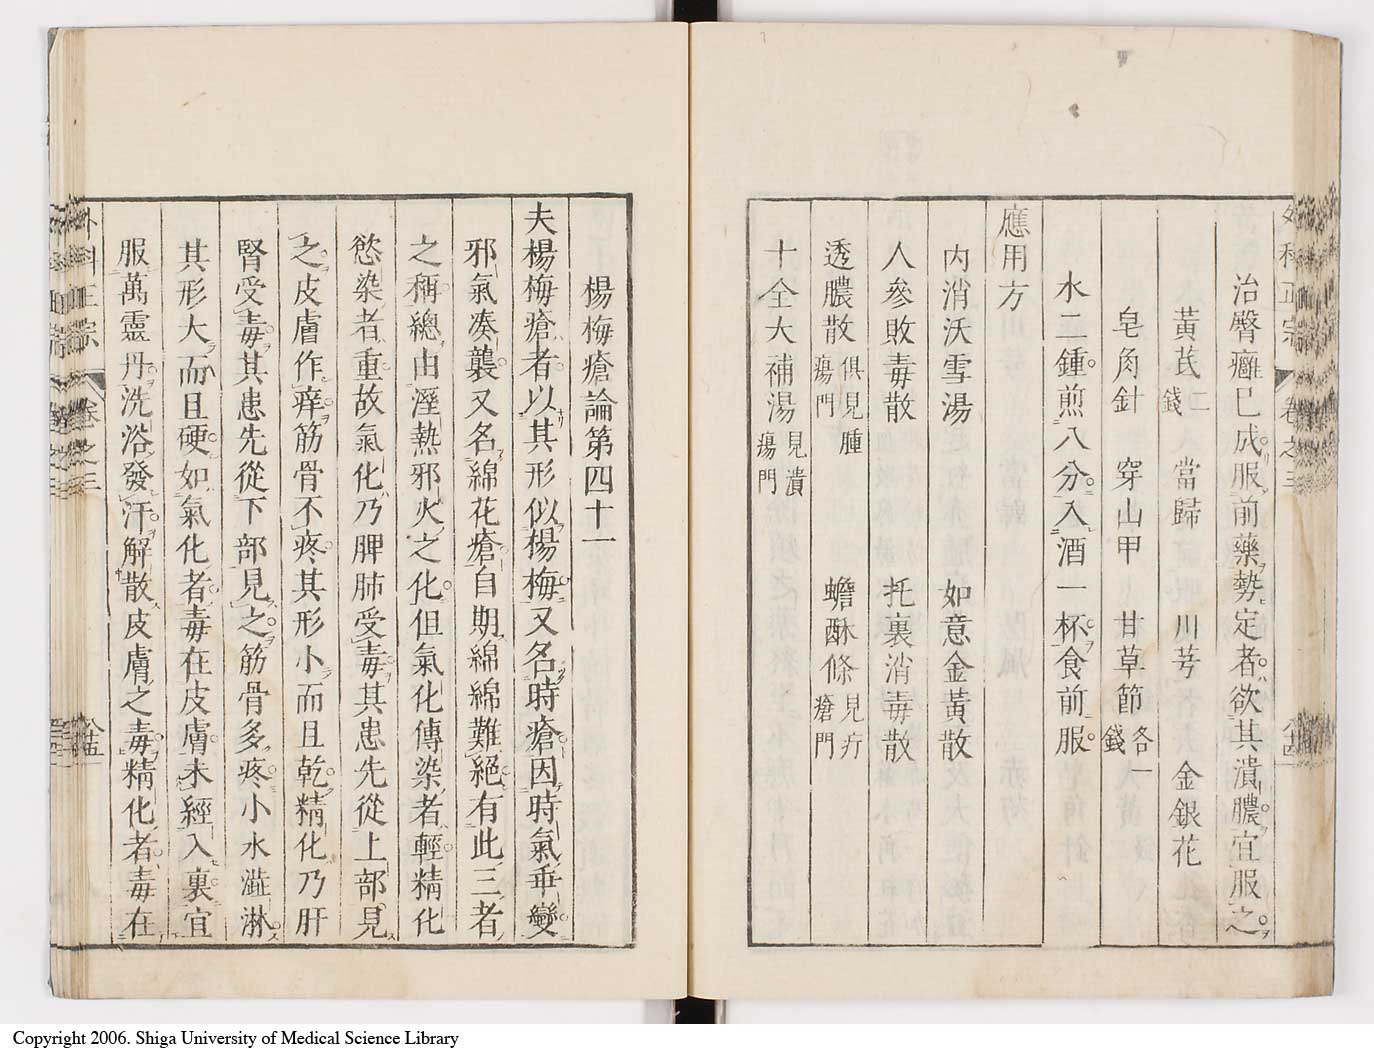 治臀癰已成服前藥勢定者欲其潰膿宜服之
黃芪二錢 當歸 川芎 金銀花
皂角針 穿山甲 甘草節各一錢
水二鍾煎八分入酒一杯食前服
應用方
內消沃雪湯 如意金黃散
人參敗毒散 托裏消毒散
透膿散俱見腫瘍門 蟾酥條見疔瘡門
十全大補湯見潰瘍門
楊梅瘡論第四十一
夫楊梅瘡者以其形似楊梅又名時瘡因時氣乖變
邪氣凑襲又名綿花瘡自期綿綿難絕有此三者
之稱總由溼熱邪火之化但氣化傳染者輕精化
慾染者重故氣化乃脾肺受毒其患先從上部見
之皮膚作痒筋骨不疼其形小而且乾精化乃肝
腎受毒其患先從下部見之筋骨多疼小水澁淋
其形大而且硬如氣化者毒在皮膚未經入裏宜
服萬靈丹洗浴發汗解散皮膚之毒精化者毒在
外科正宗 卷之三
Copyright 2006. Shiga University of Medical Science Library